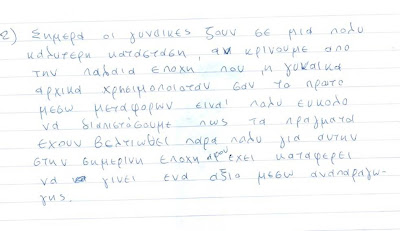 2) Σημερα οι γυναικες ζουν σε μια πολυ
καλυτερη κατασταση, αν κρινουμε απο
την παλαια εποχη που η γυναικα
αρχικα χρησιμοποιοταν σαν το πρωτο
μεσω μεταφορων ειναι πολυ ευκολο
να διαπιστοσουμε πως τα πραγματα
εχουν βελτιωθει παρα πολυ για αυτην
στην σημερινη εποχη αφου εχει καταφερει
να γινει ενα αξια μεσω αναπαραγω-
γης.